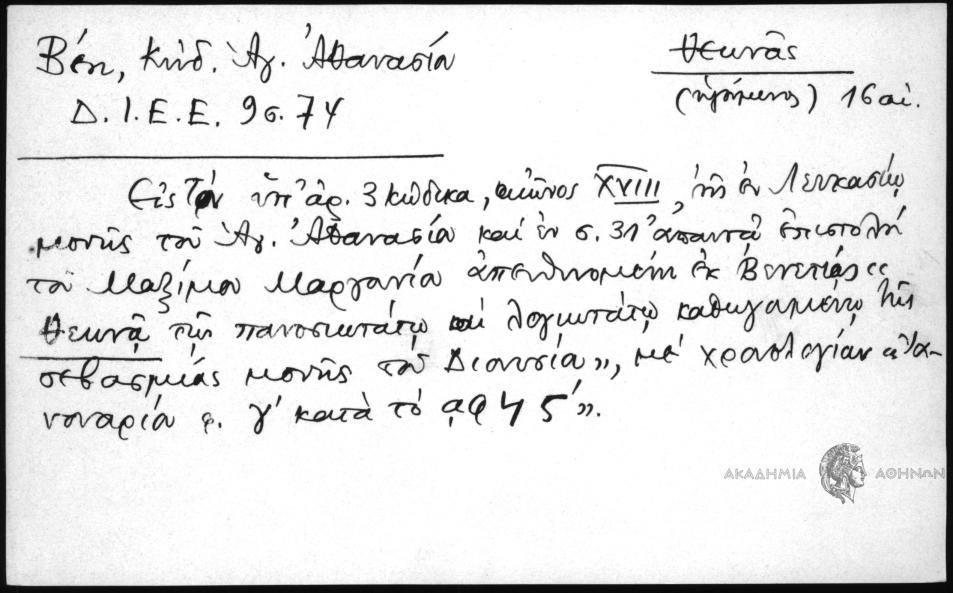 Βέη, Κώδ. Ἁγ. Ἀθανασίου
Θεωνᾶς
Δ. Ι. Ε. Ε. 9 σ. 74
(ἡγούμενος) 16 αἰ.
Εἰς τὸν ὑπ' ἀρ. 3 κώδικα, αἰῶνος XVIII, τῆς ἐν Λευκασίῳ
μονῆς τοῦ Ἁγ. Ἀθανασίου καὶ ἐν σ. 31 ἀπαντᾷ ἐπιστολὴ
τοῦ Μαξίμου Μαργουνίου ἀπευθυνομένη ἐκ Βενετίας «
Θεωνᾷ τῷ πανοσιωτάτῳ καὶ λογιωτάτῳ καθηγουμένῳ τῆς
σεβασμίας μονῆς τοῦ Διονυσίου», μὲ χρονολογίαν «Ἰα-
νουαρίου φ. γ' κατὰ τὸ αφ45'».
ΑΚΑΔΗΜΙΑ ΑΘΗΝΩΝ